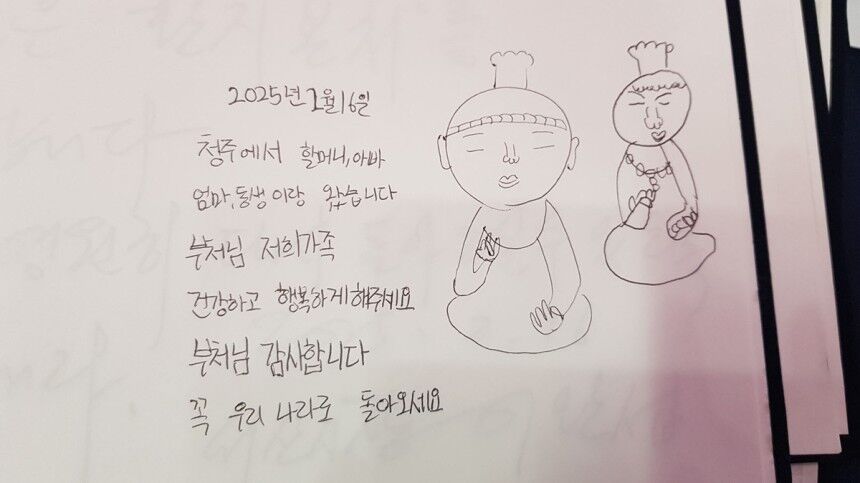 2025년 2월 16일
청주에서 할머니, 아빠
엄마, 동생이랑 왔습니다
부처님 저희가족
건강하고 행복하게 해주세요
부처님 감사합니다
꼭 우리 나라로 돌아오세요